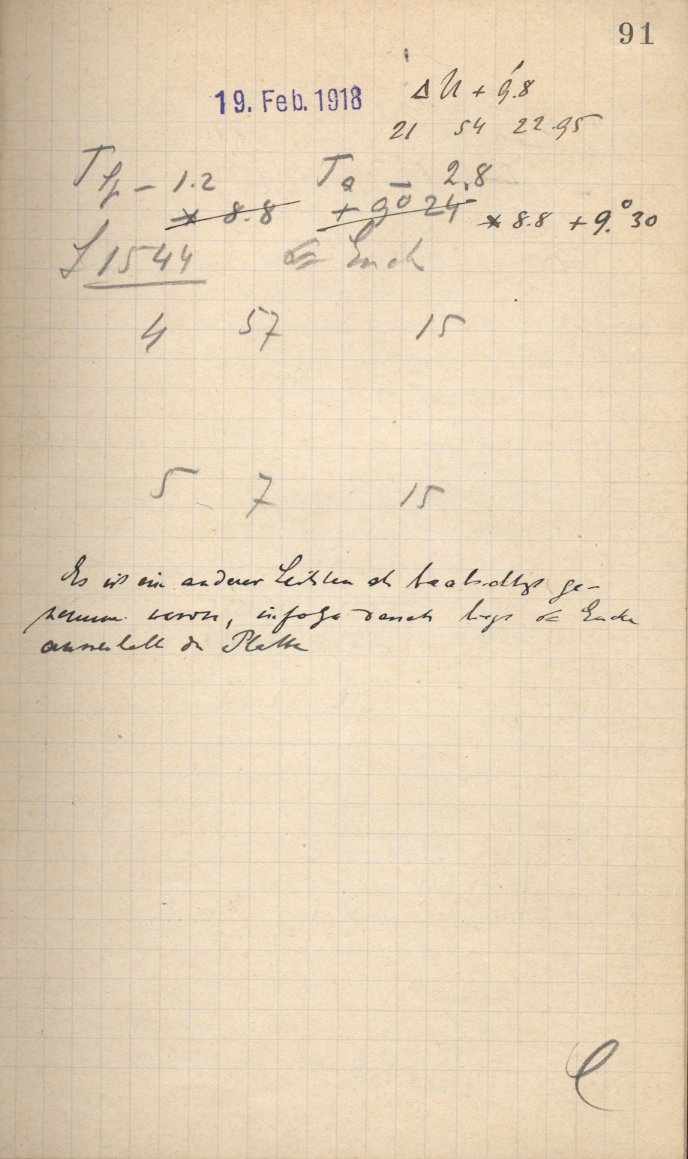 91
19. Feb. 1918 ΔU + 9.8
21 54 22.95
Tp - 1.2 Ta - 2.8
* 8.8 + 9° 24 * 8.8 + 9.° 30
L 1544
4 57 15
5 7 15
Es ist ein anderer Leitstern als beabsichtigt ge-
nommen worden, infolge dessen liegt Encke
ausserhalb der Platte